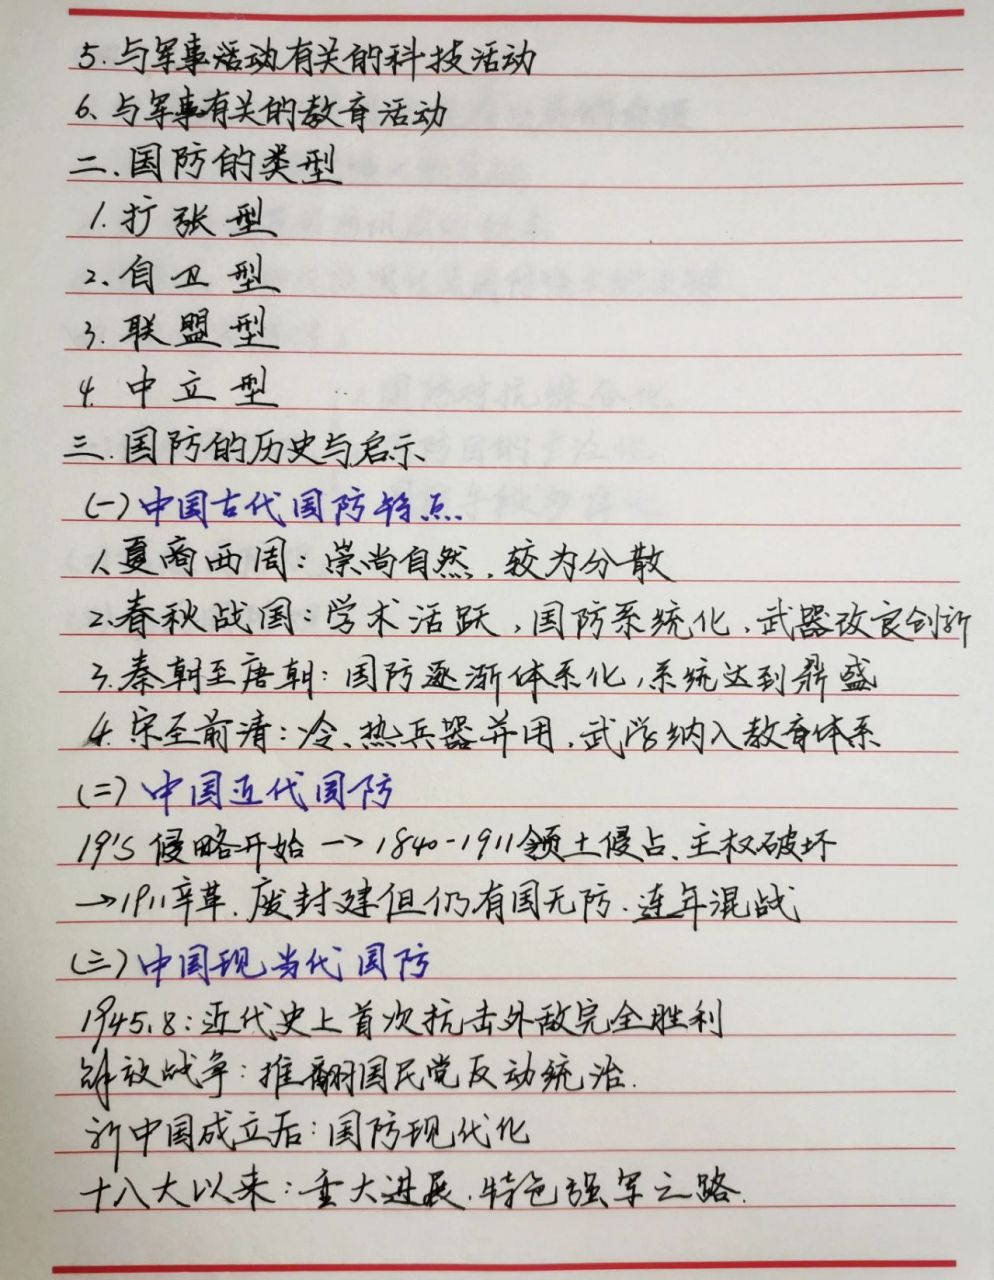 5.与军事活动有关的科技活动
6.与军事有关的教育活动
二.国防的类型
1.扩张型
2.自卫型
3.联盟型
4.中立型
三.国防的历史与启示
(一)中国古代国防特点
1.夏商西周:崇尚自然,较为分散
2.春秋战国:学术活跃,国防系统化,武器改良创新
3.秦朝至唐朝:国防逐渐体系化,系统达到鼎盛
4.宋至前清:冷、热兵器并用,武学纳入教育体系
(二)中国近代国防
19'S 侵略开始→1840-1911领土侵占、主权破坏
→1911辛革.废封建但仍有国无防.连年混战
(三)中国现当代国防
1945.8:近代史上首次抗击外敌完全胜利
解放战争:推翻国民党反动统治.
新中国成立后:国防现代化
十八大以来:重大进展.特色强军之路.